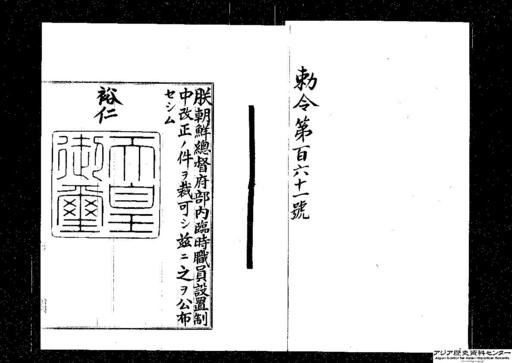 勅令第百六十一號
朕朝鮮總督府部內臨時職員設置制
中改正ノ件ヲ裁可シ玆ニ之ヲ公布
セシム
裕仁
天皇
御璽
アジア歴史資料センター
Japan Center for Asian Historical Records